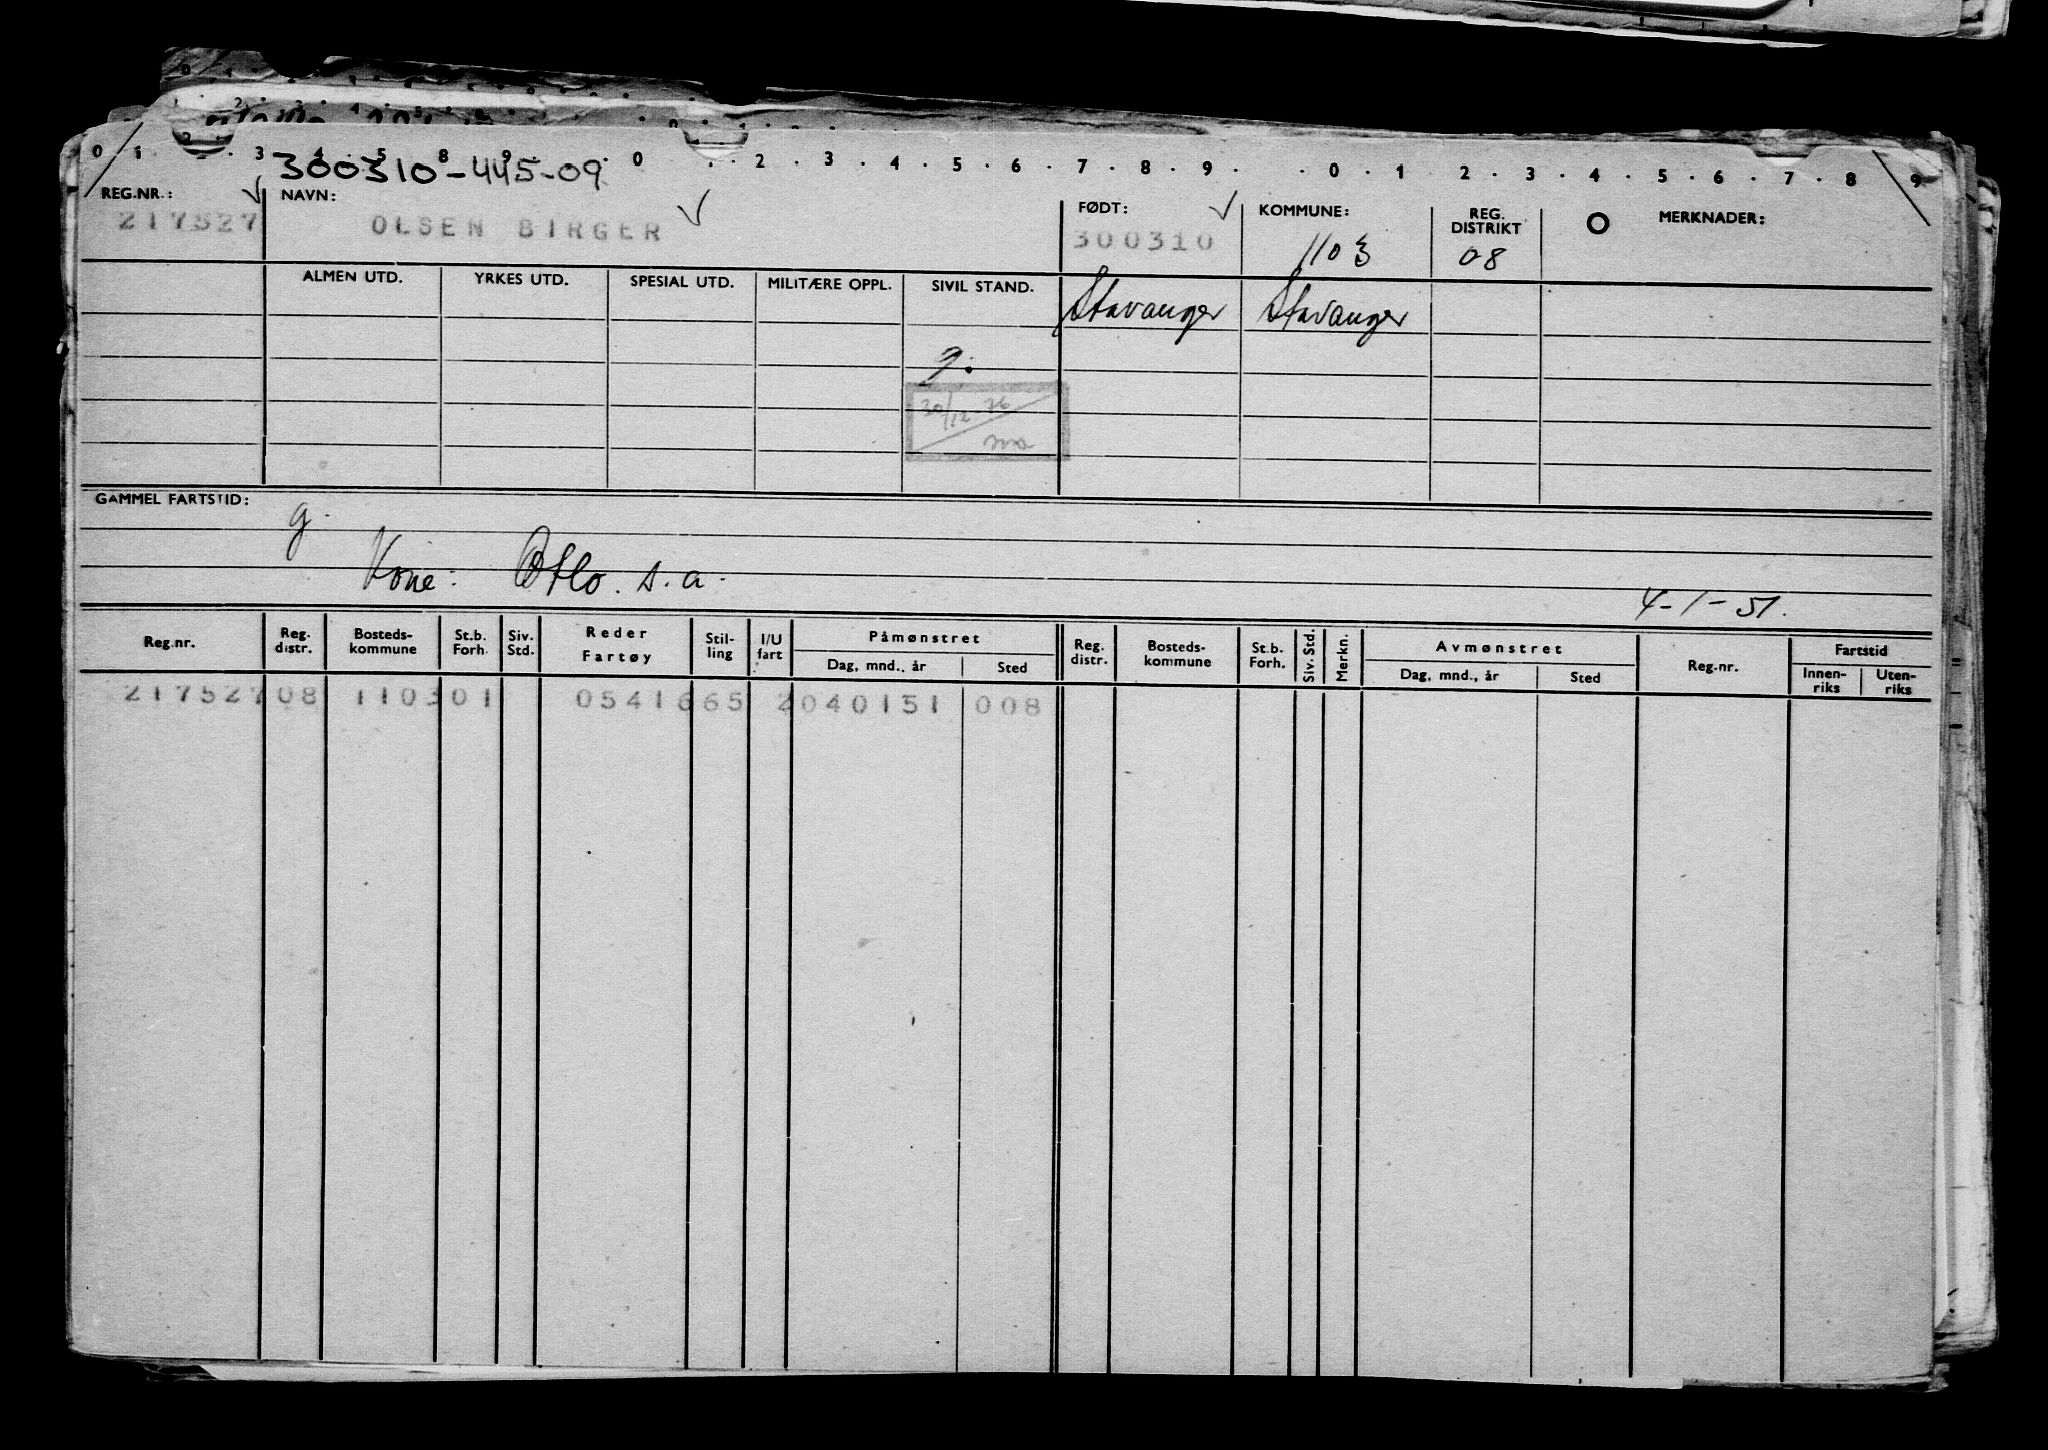 0 1 2 3 4 5 8 9 0 2 3 4 5 6 7 8 9 0 1 2 3 4 5 6 7 8 9
300310-445-09
REG.NR.: NAVN: FØDT: KOMMUNE: REG. DISTRIKT MERKNADER:
217527 OLSEN BIRGER 300310 1103 08
ALMEN UTD. YRKES UTD. SPESIAL UTD. MILITÆRE OPPL. SIVIL STAND. Stavanger Stavanger
g.
30/12-76
GAMMEL FARTSTID:
g.
Kone: s.a.
4-1-51.
Reg.nr. Reg. distr. Bosteds-kommune St.b. Forh. Siv. Std. Reder Fartøy Stil-ling I/U fart Påmønstret Reg. distr. Bosteds-kommune St.b. Forh. Siv. Std. Merkn. Avmønstret Reg.nr. Fartstid
Dag, mnd., år Sted Dag, mnd., år Sted Innen-riks Uten-riks
217527 08 1103 01 0541665 2040151 008